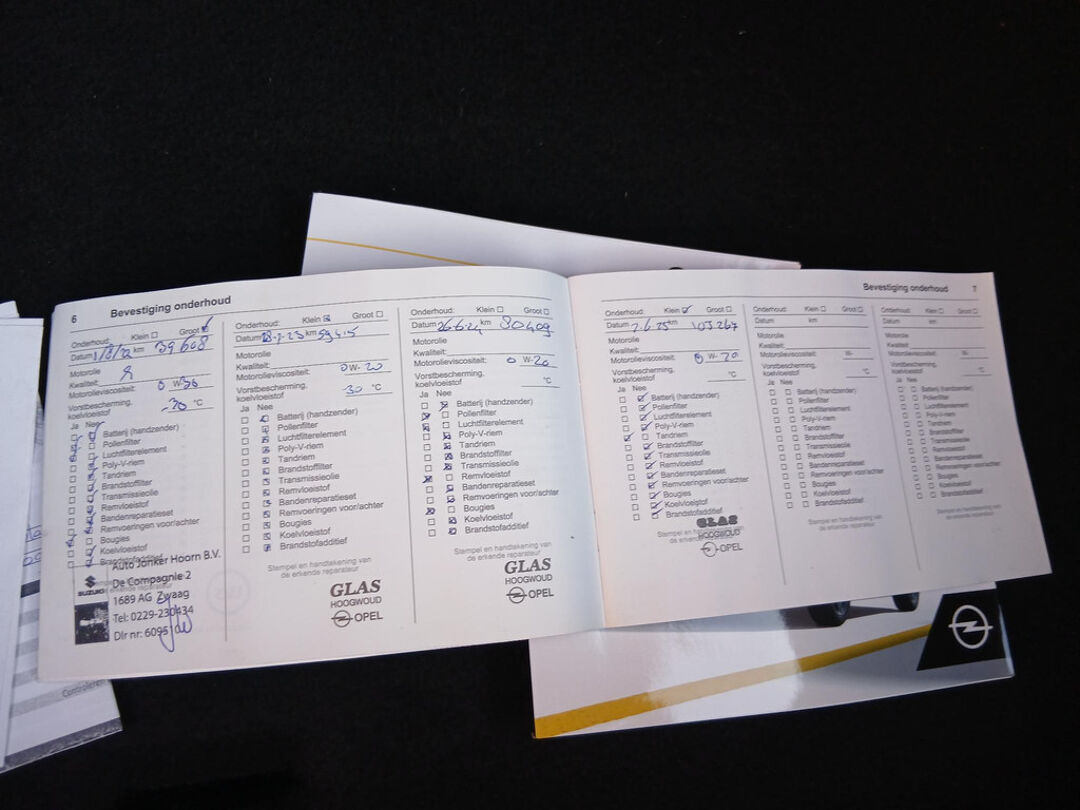 6 Bevestiging onderhoud
Onderhoud: Klein Groot
Datum 1/8/22 km 39608
Motorolie
Kwaliteit:
Motorolieviscositeit: 0 W-30
Vorstbescherming,
koelvloeistof -30 °C
Ja Nee
Batterij (handzender)
Pollenfilter
Luchtfilterelement
Poly-V-riem
Tandriem
Brandstoffilter
Transmissieolie
Remvloeistof
Bandenreparatieset
Remvoeringen voor/achter
Bougies
Koelvloeistof
Brandstofadditief
Auto Jonker Hoorn B.V.
SUZUKI
De Compagnie 2
1689 AG Zwaag
Tel: 0229-230434
Onderhoud: Klein Groot
Datum 28-7-23 km 59415
Motorolie
Kwaliteit:
Motorolieviscositeit: 0W-20
Vorstbescherming,
koelvloeistof 30 °C
Ja Nee
Batterij (handzender)
Pollenfilter
Luchtfilterelement
Poly-V-riem
Tandriem
Brandstoffilter
Transmissieolie
Remvloeistof
Bandenreparatieset
Remvoeringen voor/achter
Bougies
Koelvloeistof
Brandstofadditief
Stempel en handtekening van
de erkende reparateur
Onderhoud: Klein Groot
Datum 26-6-24 km 80409
Motorolie
Kwaliteit:
Motorolieviscositeit: 0 W-20
Vorstbescherming,
koelvloeistof °C
Ja Nee
Batterij (handzender)
Pollenfilter
Luchtfilterelement
Poly-V-riem
Tandriem
Brandstoffilter
Transmissieolie
Remvloeistof
Bandenreparatieset
Remvoeringen voor/achter
Bougies
Koelvloeistof
Brandstofadditief
Stempel en handtekening van
de erkende reparateur
GLAS
HOOGWOUD
OPEL
GLAS
HOOGWOUD
OPEL
Bevestiging onderhoud 7
Onderhoud: Klein Groot
Datum 2.6.25 km 103267
Motorolie
Kwaliteit:
Motorolieviscositeit: 0 W-20
Vorstbescherming,
koelvloeistof °C
Ja Nee
Batterij (handzender)
Pollenfilter
Luchtfilterelement
Poly-V-riem
Tandriem
Brandstoffilter
Transmissieolie
Remvloeistof
Bandenreparatieset
Remvoeringen voor/achter
Bougies
Koelvloeistof
Brandstofadditief
GLAS
HOOGWOUD
OPEL
Onderhoud: Klein Groot
Datum km
Motorolie
Kwaliteit:
Motorolieviscositeit: W-
Vorstbescherming,
koelvloeistof °C
Ja Nee
Batterij (handzender)
Pollenfilter
Luchtfilterelement
Poly-V-riem
Tandriem
Brandstoffilter
Transmissieolie
Remvloeistof
Bandenreparatieset
Remvoeringen voor/achter
Bougies
Koelvloeistof
Brandstofadditief
Stempel en handtekening van
de erkende reparateur
Onderhoud: Klein Groot
Datum km
Motorolie
Kwaliteit:
Motorolieviscositeit: W-
Vorstbescherming,
koelvloeistof °C
Ja Nee
Batterij (handzender)
Pollenfilter
Luchtfilterelement
Poly-V-riem
Tandriem
Brandstoffilter
Transmissieolie
Remvloeistof
Bandenreparatieset
Remvoeringen voor/achter
Bougies
Koelvloeistof
Brandstofadditief
Stempel en handtekening van
de erkende reparateur